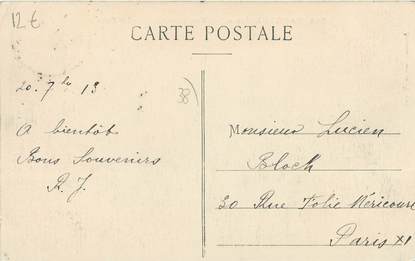 12 €
CARTE POSTALE
20. 7bre 13
38)
A bientôt
Bons Souvenirs
R. J.
Monsieur Lucien
Bloch
30 Rue Folie Méricourt
Paris XI